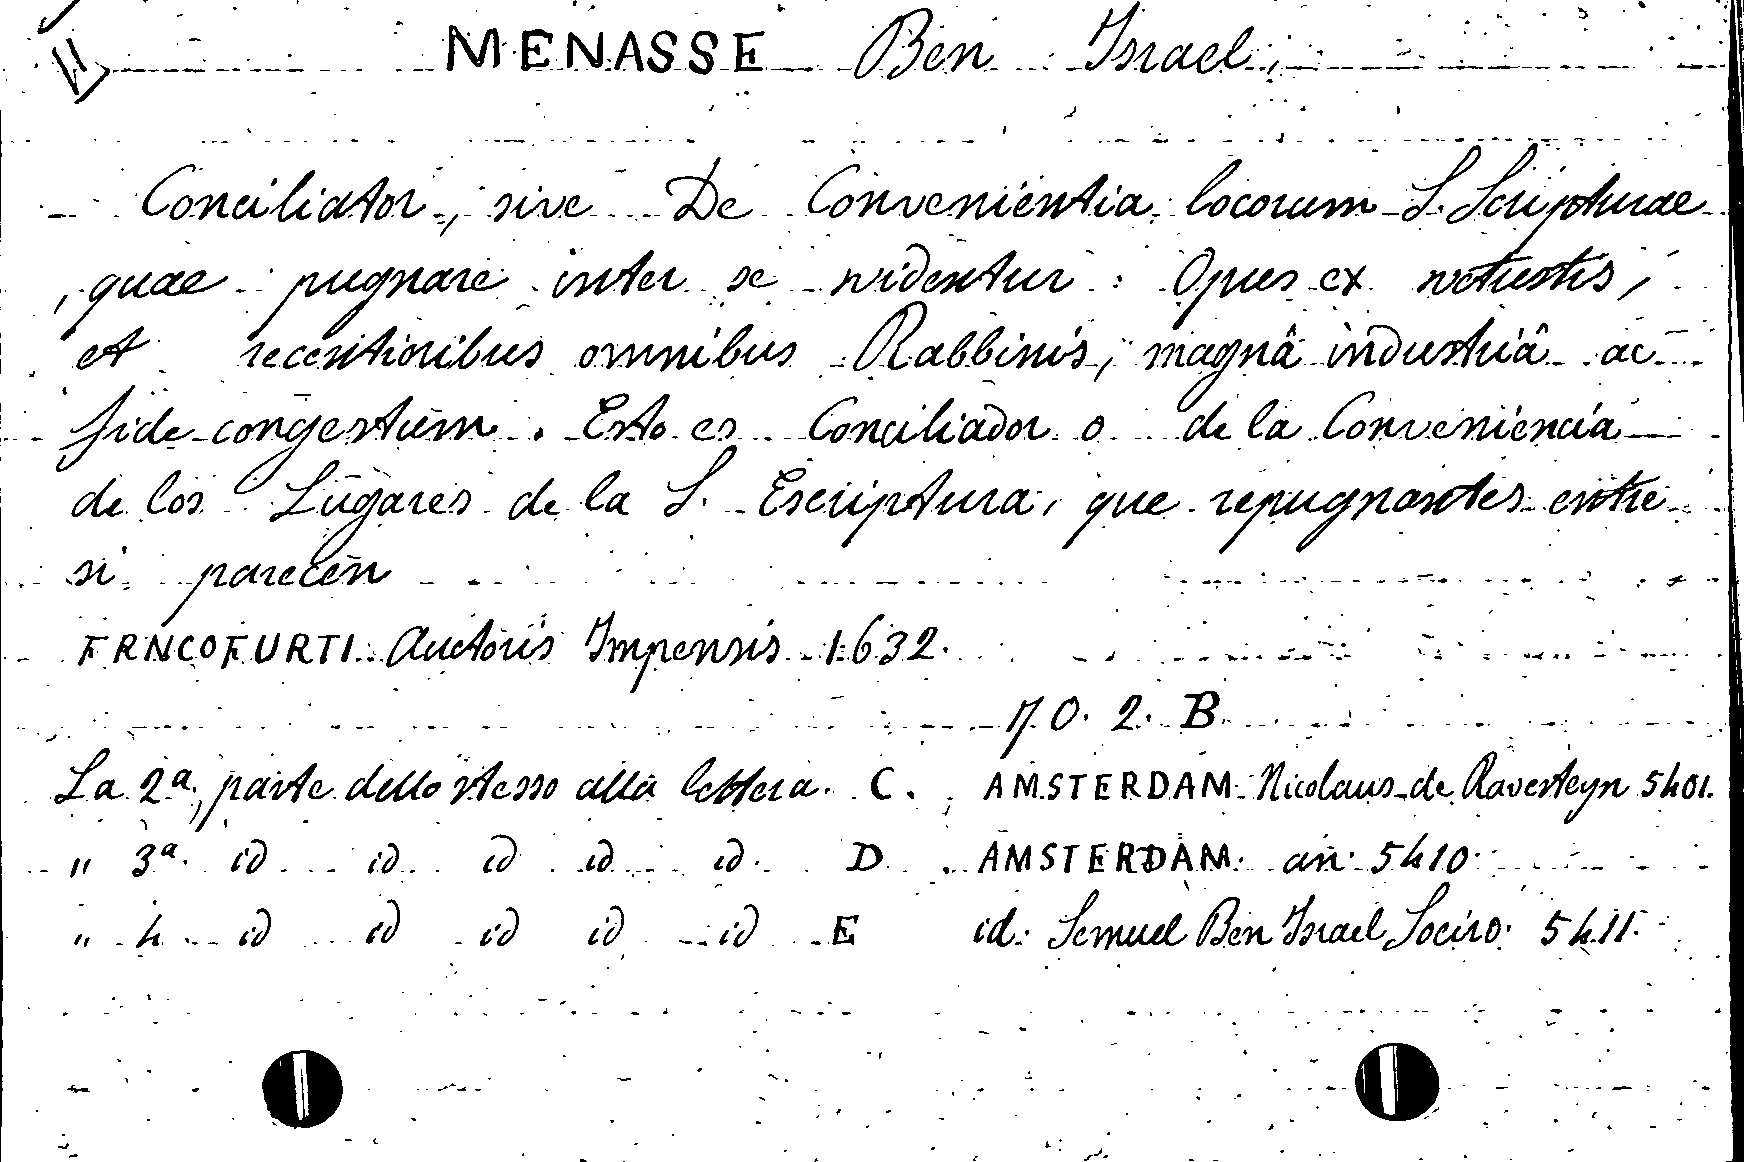 MENASSE Ben Israel,
Conciliator, sive De Convenientia locorum S. Scripturae
quae pugnare inter se videntur : Opus ex vetustis,
et recentioribus omnibus Rabbinis, magnâ industriâ ac
fide congestum. Esto es Conciliador o de la Conveniencia
de los Lugares de la S. Escriptura, que repugnantes entre
si parecen
FRNCOFURTI Auctoris Impensis 1632.
70. 2. B
La 2a, parte dello stesso alla lettera. C. AMSTERDAM Nicolaus de Ravesteyn 5401.
" 3a. id id id id id. D. AMSTERDAM. an. 5410.
" 4 id id id id id E id. Semuel Ben Israel Soeiro. 5411.